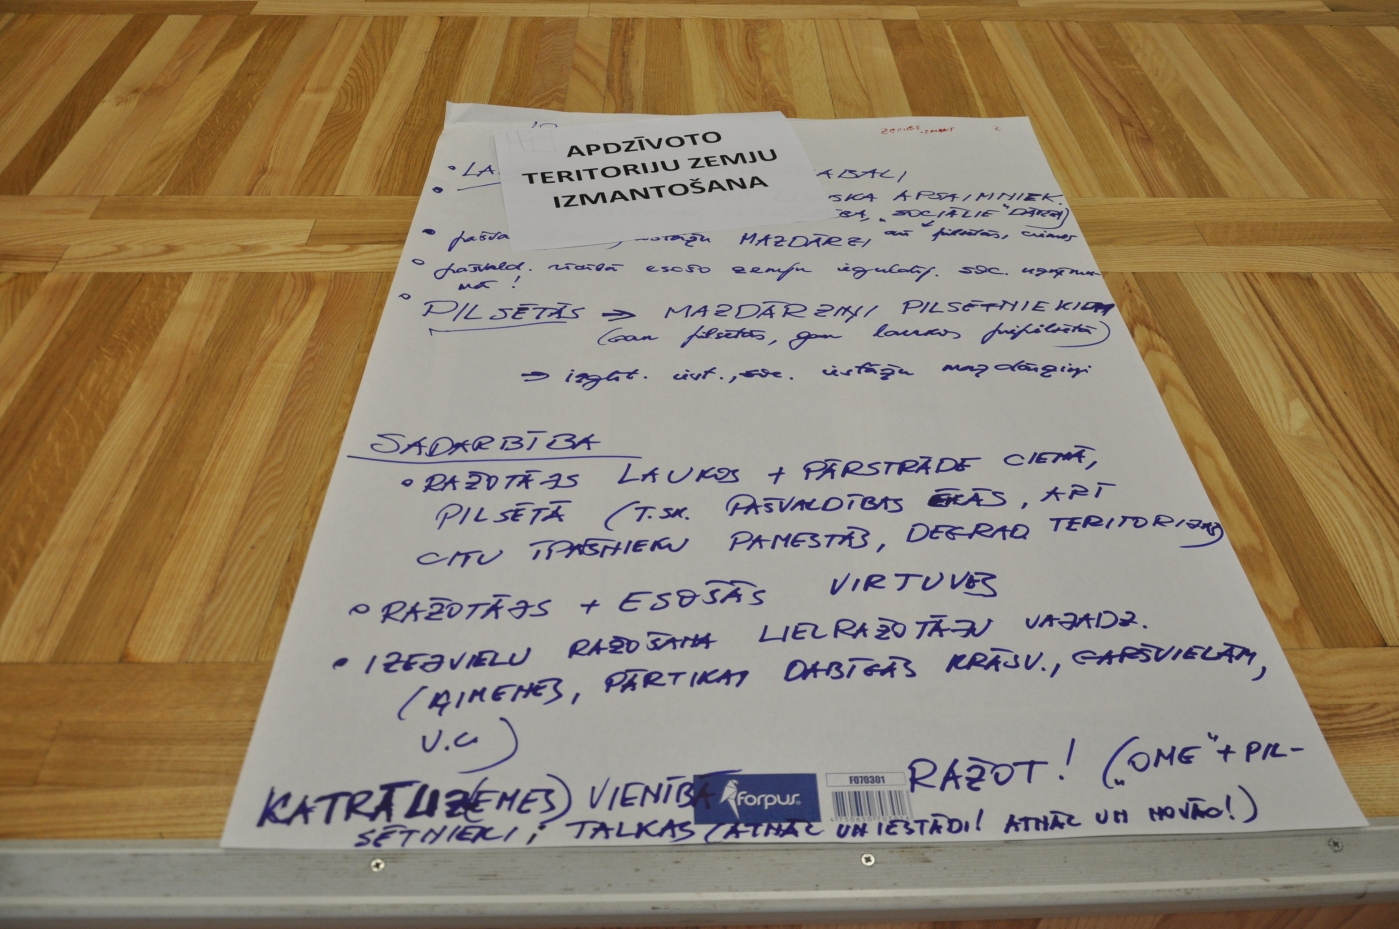 ZEMES IZMANT
APDZĪVOTO
TERITORIJU ZEMJU
IZMANTOŠANA
• LA
ABALI
SKA APSAIMNIEK.
BA, "SOCIĀLIE" DĀRZI)
• pašva iestāžu MAZDĀRZI arī pilsētās, ciemos
• pašvald. rīcībā esošo zemju
• PILSĒTĀS → MAZDĀRZIŅI PILSĒTNIEKIEM
(gan pilsētās, gan laukos pie pilsētā)
→ izglīt. iest., soc. iestāžu mazdārziņi
SADARBĪBA
• RAŽOTĀJS LAUKOS + PĀRSTRĀDE CIEMĀ,
PILSĒTĀ (T.SK. PAŠVALDĪBAS ĒKĀS, ARĪ
CITU ĪPAŠNIEKU PAMESTĀS, DEGRAD TERITORIJĀS)
• RAŽOTĀJS + ESOŠĀS VIRTUVES
• IZEJVIELU RAŽOŠANA LIELRAŽOTĀJU VAJADZ.
(ĶIMENES, PĀRTIKAI DABĪGĀS KRĀSV., GARŠVIELĀM,
U.C.)
KATRĀ UZ(EMES) VIENĪBĀ RAŽOT! ("OME" + PIL-
SĒTNIEKI; TALKAS (ATNĀC UN IESTĀDI! ATNĀC UN NOVĀC!)
forpus
F070301